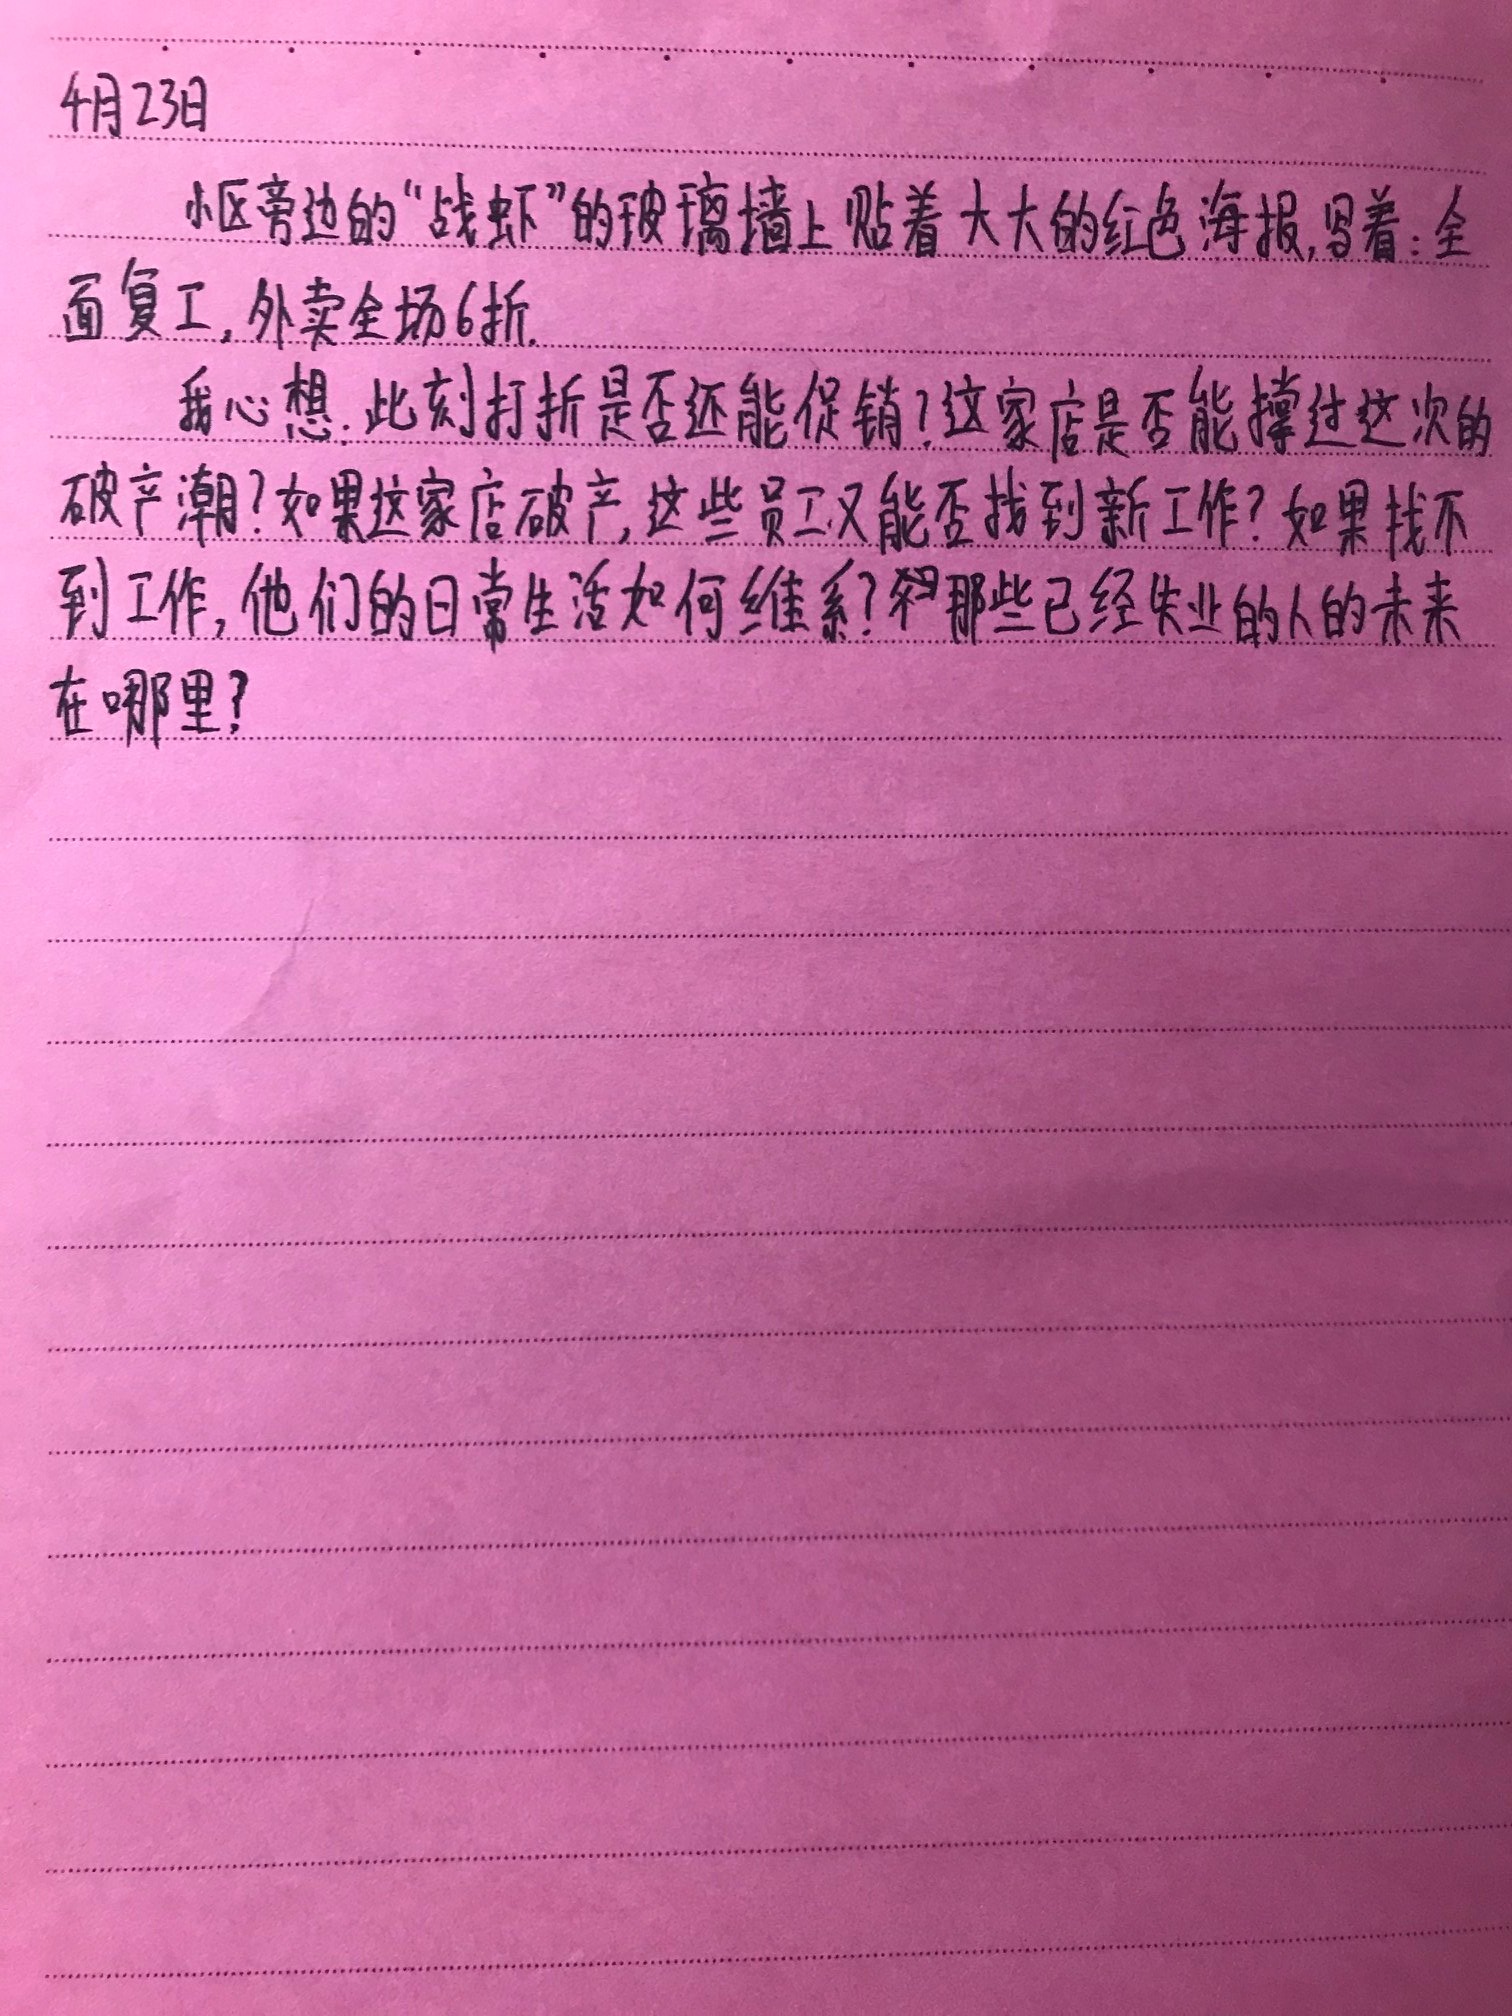 4月23日
小区旁边的“战虾”的玻璃墙上贴着大大的红色海报,写着:全
面复工,外卖全场6折.
我心想.此刻打折是否还能促销?这家店是否能撑过这次的
破产潮?如果这家店破产,这些员工又能否找到新工作?如果找不
到工作,他们的日常生活如何维系?那些已经失业的人的未来
在哪里?